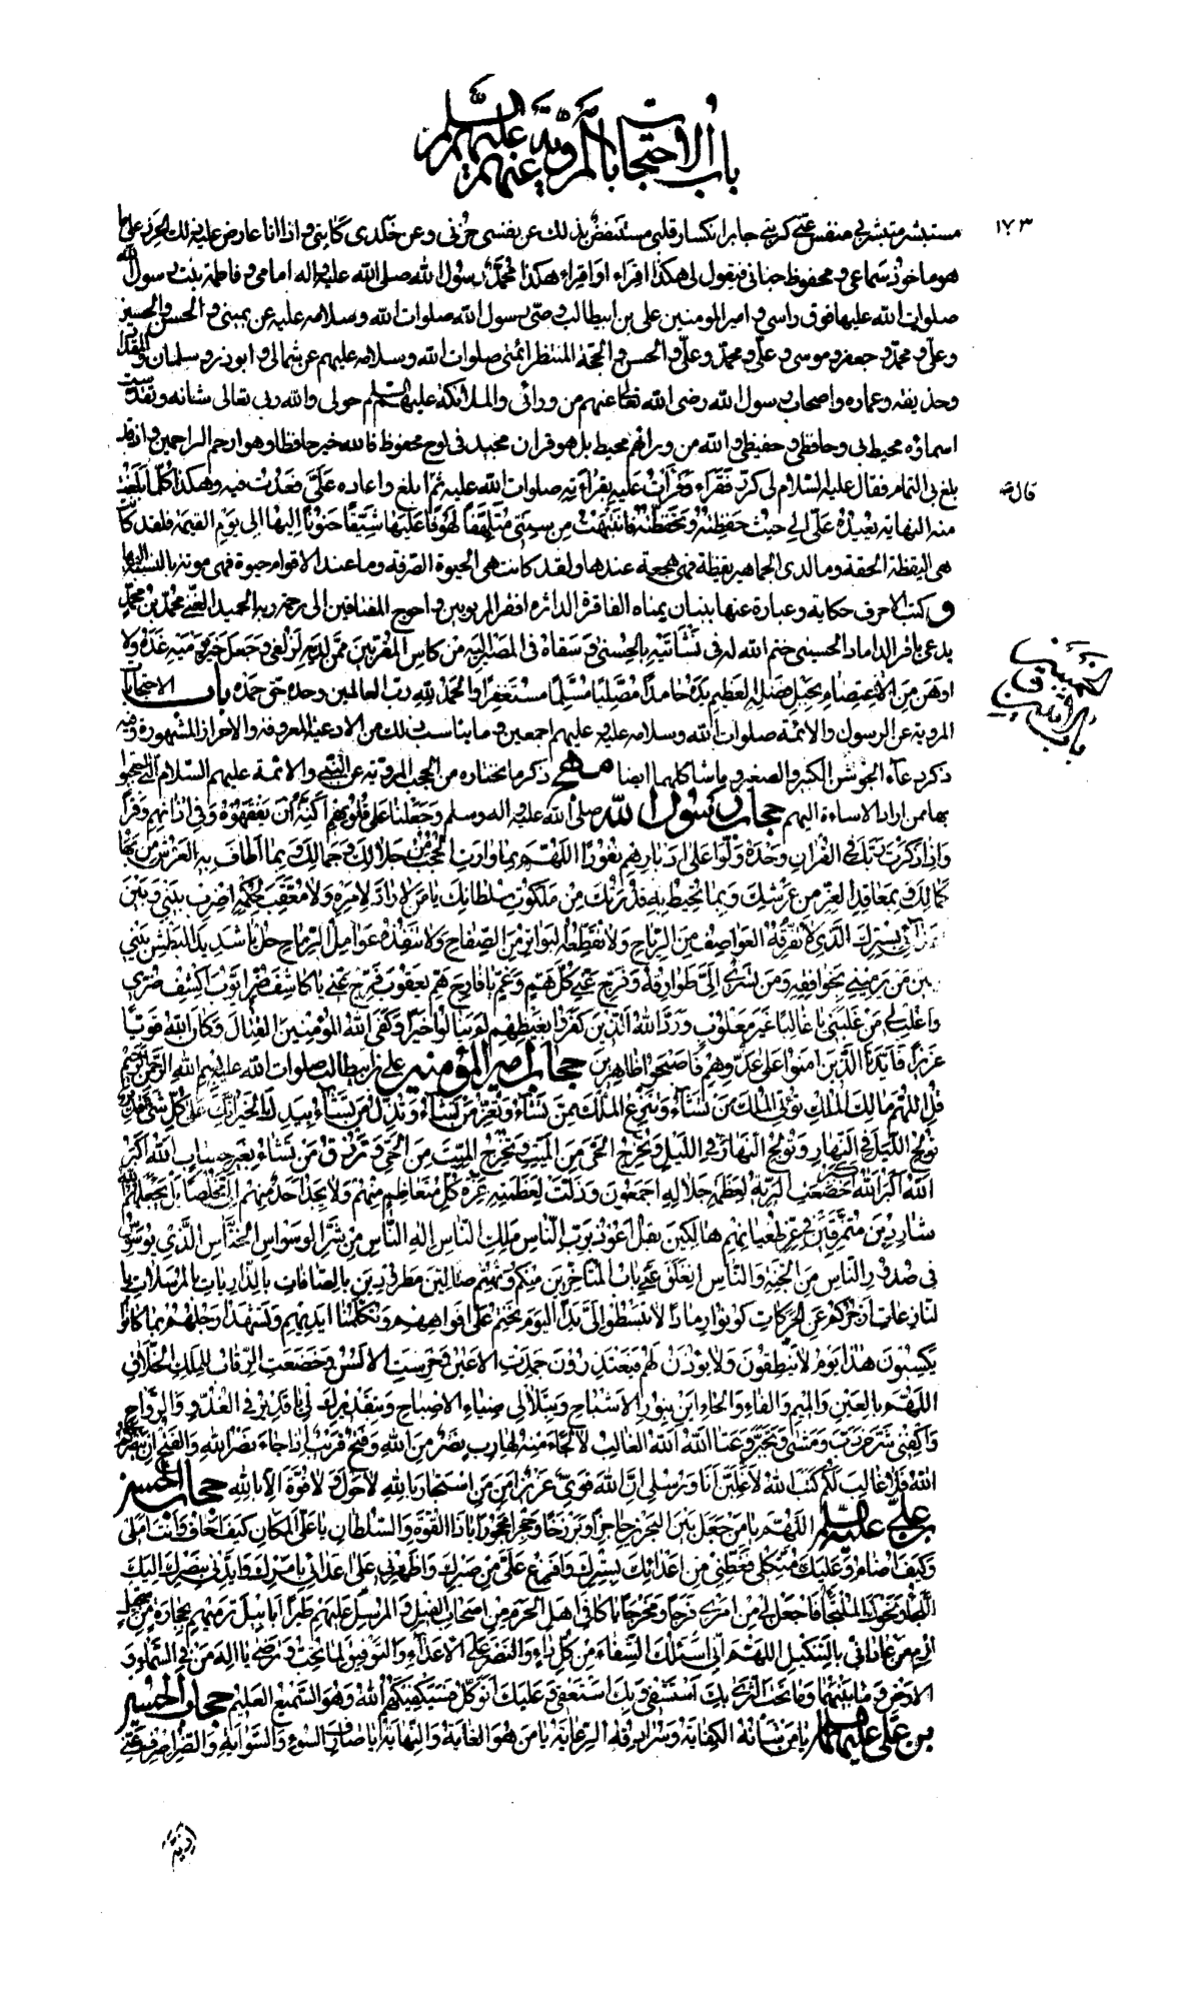 باب الاحتجابات المروية عنهم عليهم السلم
١٧٣
مستبشر متبشر بى منفس عنى كربتى جابر انكسار قلبى مستنفض بذلك عن نفسى حزنى وعن خلدى كابتى واذا انا عارض عليه ذلك الحرز على ما
هو ماخوذ سماعى ومحفوظ جنانى فيقول لى هكذا اقراء اوا قراء هكذا محمد رسول الله صلى الله عليه واله امامى وفاطمة بنت رسول الله
صلوات الله عليها فوق راسى وامير المومنين على بن ابيطالب وصى رسول الله صلوات الله وسلامه عليه عن يمينى والحسن والحسين
وعلى ومحمد وجعفر وموسى وعلى ومحمد وعلى والحسن والحجة المنتظر ائمتى صلوات الله وسلامه عليهم عن شمالى وابوذر وسلمان والمقداد
وحذيفه وعمار واصحاب رسول الله رضى الله تعالى عنهم من ورائى والملائكة عليهم السلم حولى والله ربى تعالى شانه وتقدست
اسماؤه محيط بى وحافظى وحفيظى والله من ورائهم محيط بل هو قران مجيد فى لوح محفوظ فالله خير حافظا وهو ارحم الراحمين واذ قد
بلغ بى التمام فقال عليه السلام لى كرر فقراء وقرأت عليه بقراءته صلوات الله عليه ثم ابلغ واعاده على فعدت فيه وهكذا كلما ابلغت
منه النهاية يعيده على الى حيث حفظته وتحفظته فانتبهت من سنتى متلهفا لهوفا عليها شيقا حنونا اليها الى يوم القيمة فلقد كانت
هى اليقظة الحقة وما لدى الجماهير يقظة فهى هجعة عندها ولقد كانت هى الحيوة الصرفة وما عند الاقوام حيوة فهى موتة بالنسبة اليها
وكتب الاحرف حكاية وعبارة عنها ببنان يمناه الفاقرة الداثرة افقر المربوبين واحوج المفتاقين الى رحمة ربه الحميد الغنى محمد بن محمد
يدعى باقر الداماد الحسينى ختم الله له فى نشاتيه بالحسنى وسقاه فى المصير اليه من كاس المقربين ممن لديه لزلفى وجعل خير يوميه غده ولا
اوهن من الاعتصام بحبل فضل الله العظيم يده حامدا مصليا مسلما مستغفرا والحمد لله رب العالمين وحده حق حمده باب الاحتجابات
المروية عن الرسول والائمة صلوات الله وسلامه عليه وعليهم اجمعين وما يناسب ذلك من الادعية المعروفة والاحراز المشهورة وفيه
ذكر دعاء الجوشن الكبير والصغير وما شاكلهما ايضا منهج ذكر ما نختاره من الحجب المروية عن النبى والائمة عليهم السلام التى احتجبوا
بها ممن اراد الاساءة اليهم حجاب رسول الله صلى الله عليه واله وسلم وجعلنا على قلوبهم اكنة ان يفقهوه وفى اذانهم وقرا
واذا ذكرت ربك فى القران وحده ولوا على ادبارهم نفورا اللهم بما وارت الحجب من جلالك وجمالك وبما اطاف به العرش من بهاء
كمالك وبمعاقد العز من عرشك وبما تحيط به قدرتك من ملكوت سلطانك يا من لا راد لامره ولا معقب لحكمه اضرب بينى وبين
اعدائى بسترك الذى لا تفرقه العواصف من الرياح ولا تقطعه البواتر من الصفاح ولا تنفذه عوامل الرماح حل يا شديد البطش بينى
وبين من يرمينى بخوافقه ومن تسرى الى طوارقه وفرج عنى كل هم وغم يا فارج هم يعقوب فرج عنى يا كاشف ضر ايوب اكشف ضرى
واغلب لى من غلبنى يا غالبا غير مغلوب ورد الله الذين كفروا بغيظهم لم ينالوا خيرا وكفى الله المؤمنين القتال وكان الله قويا
عزيزا فايدنا الذين امنوا على عدوهم فاصبحوا ظاهرين حجاب امير المؤمنين على بن ابيطالب صلوات الله عليه بسم الله الرحمن الرحيم
قل اللهم مالك الملك تؤتى الملك من تشاء وتنزع الملك ممن تشاء وتعز من تشاء وتذل من تشاء بيدك الخير انك على كل شئ قدير
تولج الليل فى النهار وتولج النهار فى الليل وتخرج الحى من الميت وتخرج الميت من الحى وترزق من تشاء بغير حساب الله اكبر
الله اكبر الله اكبر خضعت البرية لعظمة جلاله اجمعون وذلت لعظمته عزة كل متعاظم منهم ولا يجد احد منهم الى مخلصا بل يجعلهم الله
شاردين متمزقين فى عز طغيانهم هالكين بقل اعوذ برب الناس ملك الناس اله الناس من شر الوسواس الخناس الذى يوسوس
فى صدور الناس من الجنة والناس انغلق عنى باب المتاخرين منكم وتهتم ضالين مطرودين بالصافات بالذاريات بالمرسلات با
لنازعات ازجركم عن الحركات كونوا رمادا لا تبسطوا الى يدا اليوم نختم على افواههم وتكلمنا ايديهم وتشهد ارجلهم بما كانوا
يكسبون هذا يوم لا ينطقون ولا يؤذن لهم فيعتذرون جمدت الاعين وخرست الالسن وخضعت الرقاب للملك الخلاق
اللهم بالعين والميم والفاء والحاءين بنور الاشباح وبتلألى ضياء الاصباح وبتقديرك لى يا قدير فى الغدو والرواح
واكفنى شر من دب ومشى وتجبر وعتا الله الله الغالب لا ملجاء منه لهارب نصر من الله وفتح قريب اذا جاء نصر الله والفتح ان ينصركم
الله فلا غالب لكم كتب الله لاغلبن انا ورسلى ان الله قوى عزيز امن من استجار بالله لا حول ولا قوة الا بالله حجاب الحسن
بن على عليه السلم اللهم يا من جعل بين البحرين حاجزا وبرزخا وحجرا محجورا يا ذا القوة والسلطان يا على المكان كيف اخاف وانت املى
وكيف اضام وعليك متكلى فغطنى من اعدائك بسترك وافرغ على من صبرك واظهرنى على اعدائى بامرك وايدنى بنصرك اليك
اللجأ ونحوك الملتجأ فاجعل لى من امرى فرجا ومخرجا يا كافى اهل الحرم من اصحاب الفيل والمرسل عليهم طيرا ابابيل ترميهم بحجارة من سجيل
ارم من عادانى بالتنكيل اللهم انى اسئلك الشفاء من كل داء والنصر على الاعداء والتوفيق لما تحب وترضى يا اله من فى السماء و
الارض وما بينهما وما تحت الثرى بك استشفى وبك استعفى وعليك اتوكل فسيكفيكهم الله وهو السميع العليم حجاب الحسين
بن على عليهما السلم يا من شانه الكفاية وسرادقه الرعاية يا من هو الغاية والنهاية يا صارف السوء والسواية والضر اصرف عنى
اذية
قال صه
باب الثلث والخمسين